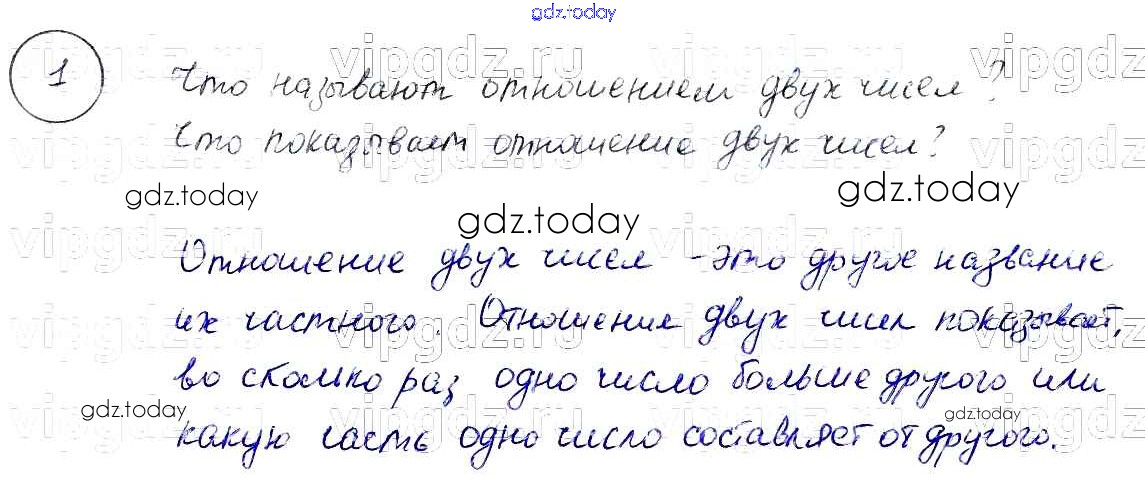 gdz.today
1 Что называют отношением двух чисел?
Что показывает отношение двух чисел?
gdz.today gdz.today gdz.today
Отношение двух чисел - это другое название
их частного. Отношение двух чисел показывает,
во сколько раз одно число больше другого или
gdz.today gdz.today
какую часть одно число составляет от другого.
vipgdz.ru vipgdz.ru vipgdz.ru vipgdz.ru